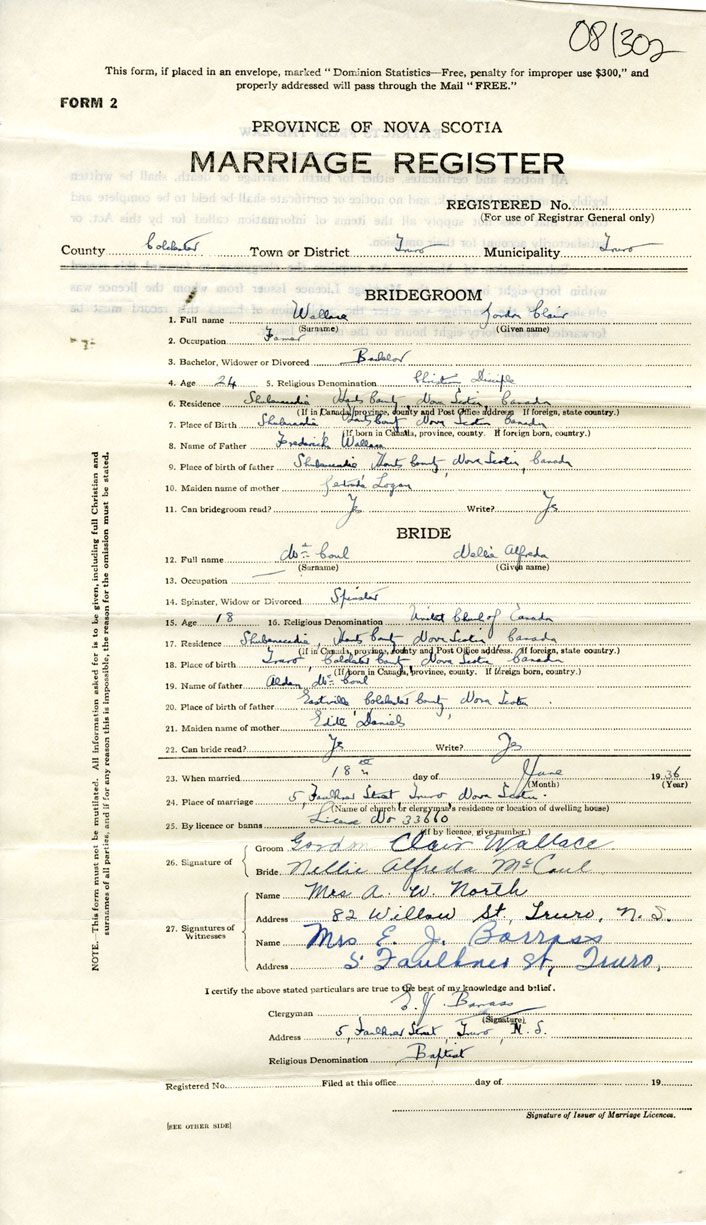 08/302
This form, if placed in an envelope, marked "Dominion Statistics—Free, penalty for improper use $300," and
properly addressed will pass through the Mail "FREE."
FORM 2
PROVINCE OF NOVA SCOTIA
MARRIAGE REGISTER
REGISTERED No.
(For use of Registrar General only)
County Colchester Town or District Truro Municipality Truro
BRIDEGROOM
1. Full name Wallace Gordon Clair
(Surname) (Given name)
2. Occupation Farmer
3. Bachelor, Widower or Divorced Bachelor
4. Age 24 5. Religious Denomination Christian Disciple
6. Residence Shubenacadie Hants County, Nova Scotia, Canada
(If in Canada, province, county and Post Office address. If foreign, state country.)
7. Place of Birth Shubenacadie Hants County Nova Scotia Canada
(If born in Canada, province, county. If foreign born, country.)
8. Name of Father Frederick Wallace
9. Place of birth of father Shubenacadie Hants County, Nova Scotia, Canada
10. Maiden name of mother Logan
11. Can bridegroom read? Yes Write? Yes
BRIDE
12. Full name McCoul Nellie Alfreda
(Surname) (Given name)
13. Occupation —
14. Spinster, Widow or Divorced Spinster
15. Age 18 16. Religious Denomination United Church of Canada
17. Residence Shubenacadie, Hants County Nova Scotia, Canada
(If in Canada, province, county and Post Office address. If foreign, state country.)
18. Place of birth Truro, Colchester County Nova Scotia Canada
(If born in Canada, province, county. If foreign born, country.)
19. Name of father Alden McCoul
20. Place of birth of father Eastville Colchester County Nova Scotia
21. Maiden name of mother Edith Daniels
22. Can bride read? Yes Write? Yes
23. When married 18th day of June 1936
(Month) (Year)
24. Place of marriage 5, Faulkner Street Truro Nova Scotia
(Name of church or clergyman's residence or location of dwelling house)
25. By licence or banns License No 33660
(If by licence, give number.)
26. Signature of Groom Gordon Clair Wallace
Bride Nellie Alfreda McCaul
27. Signatures of Witnesses
Name Mrs A. W. North
Address 82 Willow St, Truro, N. S.
Name Mrs E. J. Barrass
Address 5 Faulkner St, Truro,
I certify the above stated particulars are true to the best of my knowledge and belief.
Clergyman E. J. Barrass
(Signature)
Address 5, Faulkner Street, Truro, N. S.
Religious Denomination Baptist
Registered No. Filed at this office day of 19
Signature of Issuer of Marriage Licences.
[SEE OTHER SIDE]
NOTE.—This form must not be mutilated. All information asked for is to be given, including full Christian and
surnames of all parties, and if for any reason this is impossible, the reason for the omission must be stated.